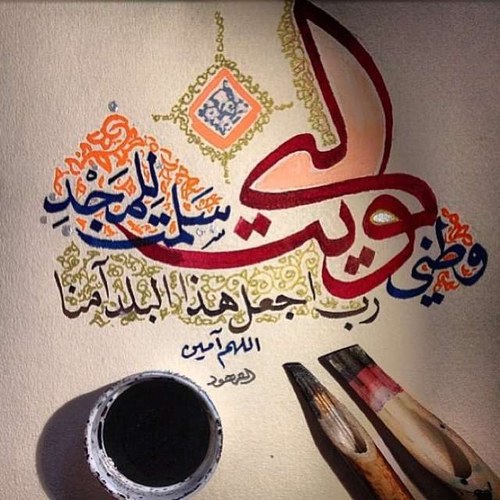 وطني الكويت سَلمت للمَجْدِ
رب اجعل هذا البلد آمنا
اللهم آمين